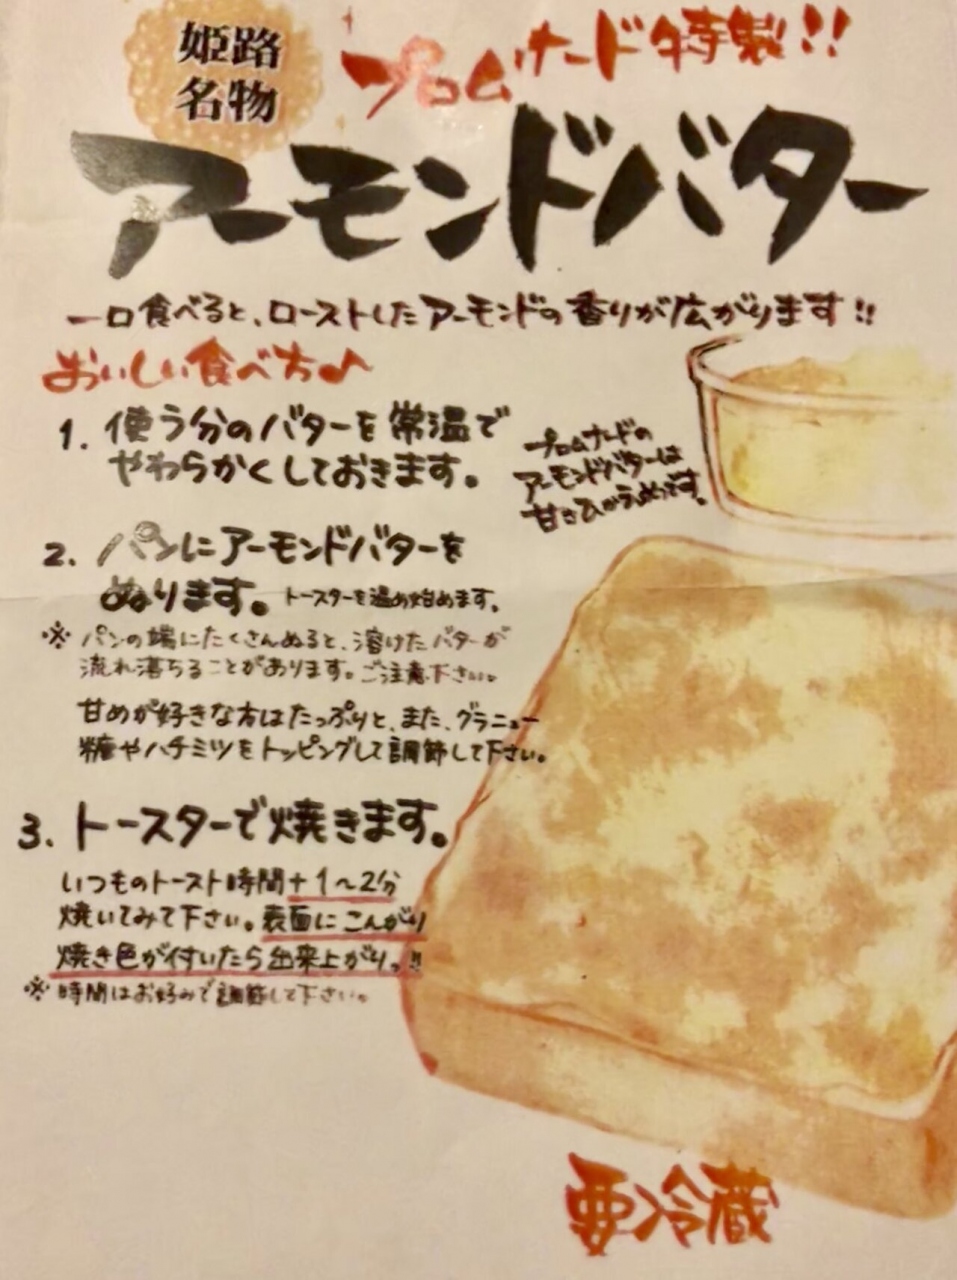 姫路
名物
プロムナード特製!!
アーモンドバター
一口食べると、ローストしたアーモンドの香りが広がります!!
おいしい食べ方♪
1. 使う分のバターを常温で
やわらかくしておきます。
プロムナードの
アーモンドバターは
甘さひかえめです。
2. パンにアーモンドバターを
ぬります。トースターを温め始めます。
※ パンの端にたくさんぬると、溶けたバターが
流れ落ちることがあります。ご注意下さい。
甘めが好きな方はたっぷりと、また、グラニュー
糖やハチミツをトッピングして調節して下さい。
3. トースターで焼きます。
いつものトースト時間+1〜2分
焼いてみて下さい。表面にこんがり
焼き色が付いたら出来上がりっ!!
※ 時間はお好みで調節して下さい。
要冷蔵